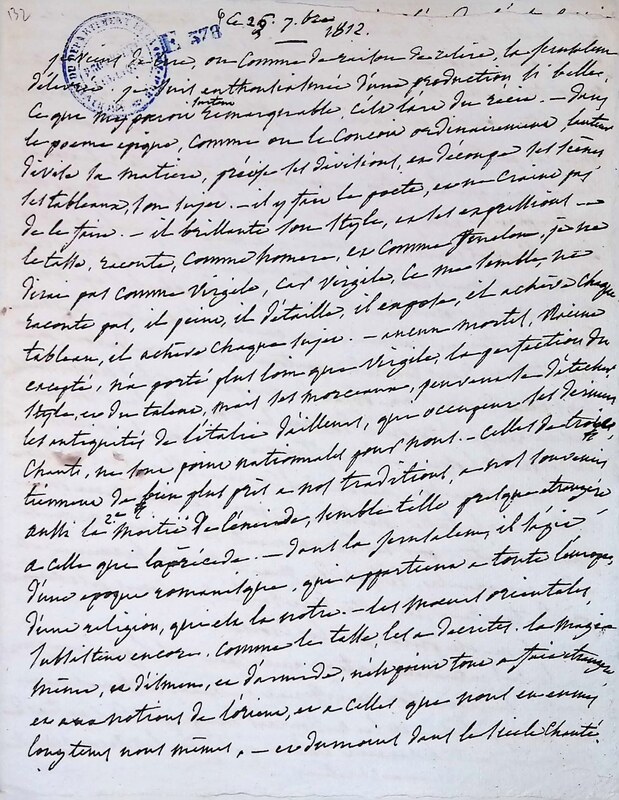 132
Ce 26 7.bre 1812.
E 378
je viens de lire, ou comme de raison de relire, la Jerusalem
délivrée, je suis enthousiasmée d'une production si belle.
Ce que surtout remarquable, c'est l'art du récit. — dans
le poeme epique, comme on le concoit ordinairement, l'auteur
divise la matiere, précise ses divisions, en découpe ses scènes
ses tableaux, son sujet. — il y fait le poete, et ne craint pas
de le faire. — il brillante son style, et ses expressions —
le tasse, raconte, comme homere, et comme fenelon, je ne
dirai pas comme Virgile, car Virgile, ce me semble, ne
raconte pas, il peint, il détaille, il expose, il achève chaque
tableau, il achève chaque sujet. — aucun mortel, Racine
excepté, n'a porté plus loin que Virgile, la perfection du
style, et du talent, mais ses morceaux, peuvent se détacher
les antiquités de l'italie d'ailleurs, qui occupent ses derniers
Chants, ne sont point nationales pour nous. — Celles de troie,
tiennent de bien plus près a nos traditions, a nos souvenirs
aussi la 2.e moitié de l'énéide, semble telle presque etrangère
a celle qui la précède. — dans la Jerusalem, il s'agit
d'une epoque romanesque, qui appartient a toute l'europe,
d'une religion, qui est la notre. — les moeurs orientales
subsistent encore, comme le tasse, les a decrites. la magie
même, et d'ismen, et d'armide, n'est point tout a fait etrangere
et aux notions de l'orient, et a celles que nous en avons
longtems nous mêmes, — et du moins dans le siècle chanté.